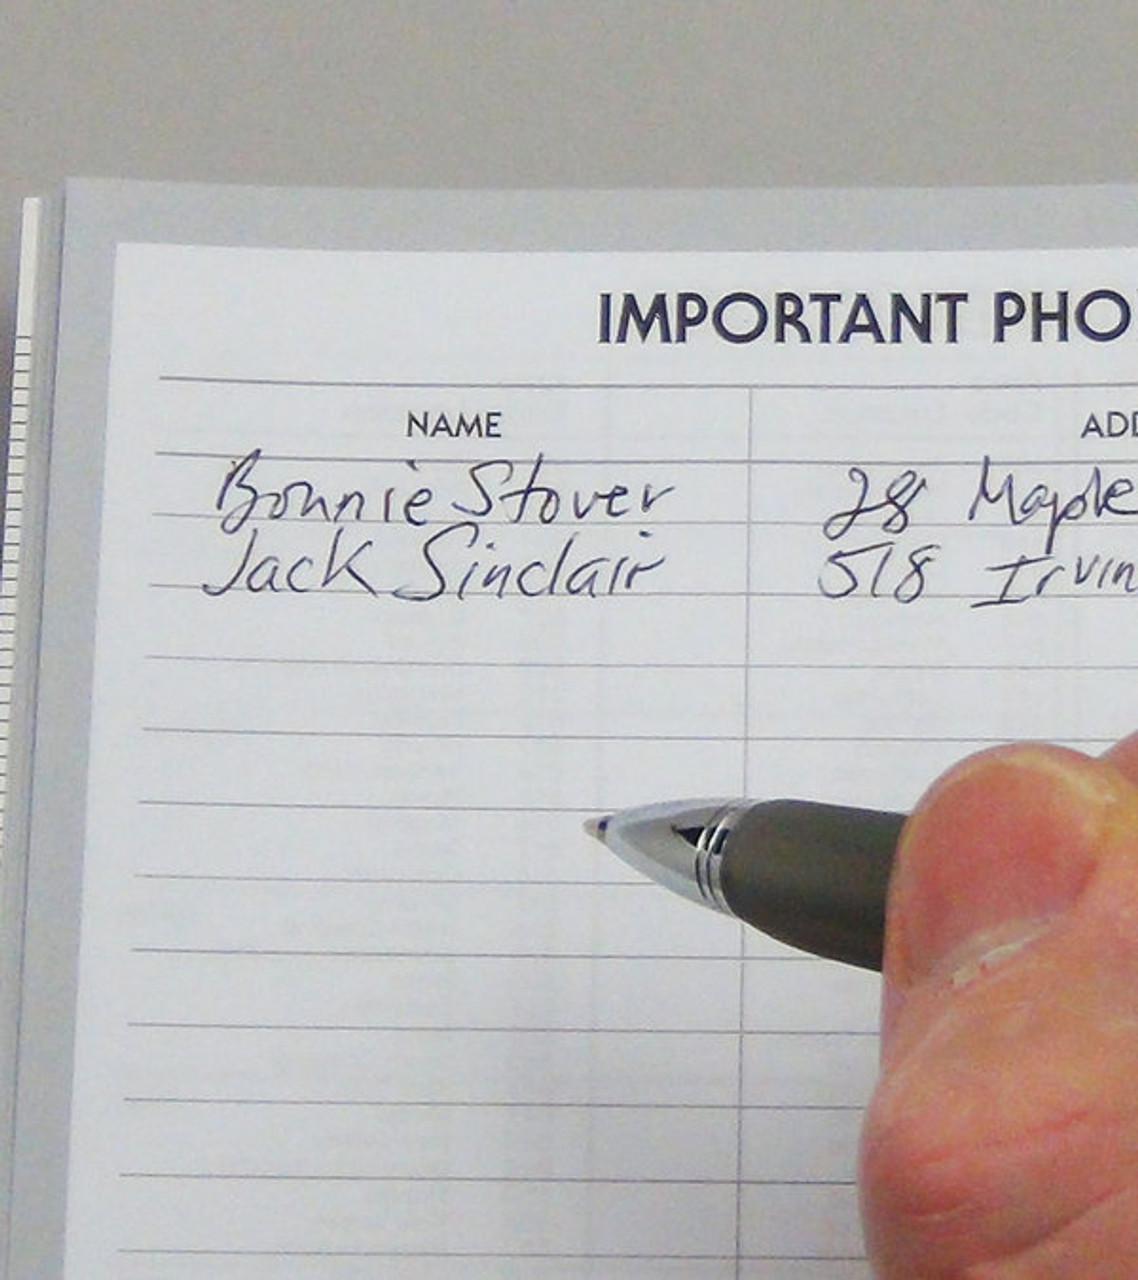 IMPORTANT PHO
NAME ADD
Bonnie Stover 28 Maple
Jack Sinclair 518 Irvin